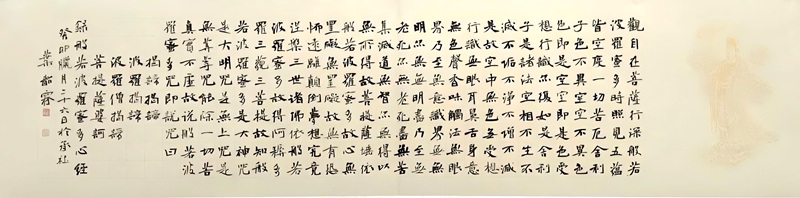 觀自在菩薩行深般若
波羅蜜多時照見五蘊
皆空度一切苦厄舍利
子色不異空空不異色
色即是空空即是色受
想行識亦復如是舍利
子是諸法空相不生不
滅不垢不淨不增不減
是故空中無色無受想
行識無眼耳鼻舌身意
無色聲香味觸法無眼
界乃至無意識界無無
明亦無無明盡乃至無
老死亦無老死盡無苦
集滅道無智亦無得以
無所得故菩提薩埵依
般若波羅蜜多故心無
罣礙無罣礙故無有恐
怖遠離顛倒夢想究竟
涅槃三世諸佛依般若
波羅蜜多故得阿耨多
羅三藐三菩提故知般
若波羅蜜多是大神咒
是大明咒是無上咒是
無等等咒能除一切苦
真實不虛故說般若波
羅蜜多咒即說咒曰
揭諦揭諦
波羅揭諦
波羅僧揭諦
菩提薩婆訶
錄般若波羅蜜多心經
癸卯臘月二十六日於
葉